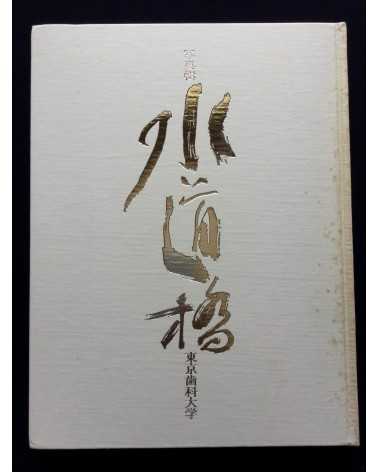 写真集
水道橋
東京歯科大学